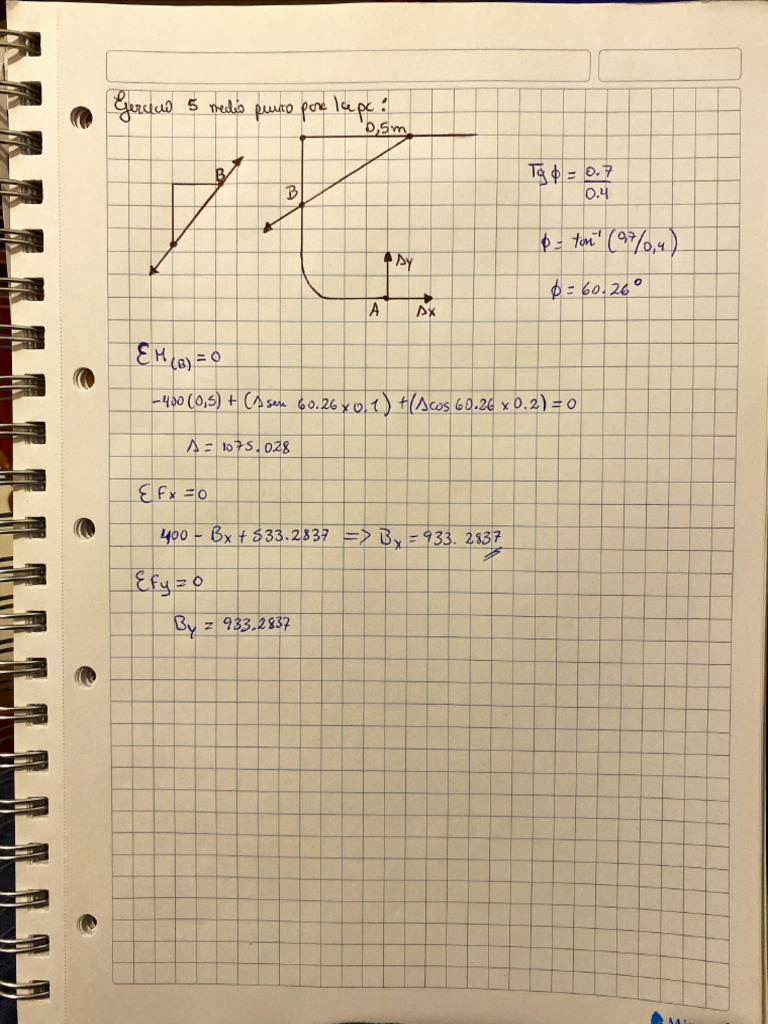 Ejercicio 5 medio punto por la pc:
0,5m
B
B
Ay
A Ax
Tg ϕ = 0.7
0.4
ϕ = tan⁻¹ (0,7/0,4)
ϕ = 60.26°
ΣM(B) = 0
-400(0,5) + (A sen 60.26 x 0.1) + (A cos 60.26 x 0.2) = 0
A = 1075.028
ΣFx = 0
400 - Bx + 533.2837 => Bx = 933.2837
ΣFy = 0
By = 933.2837